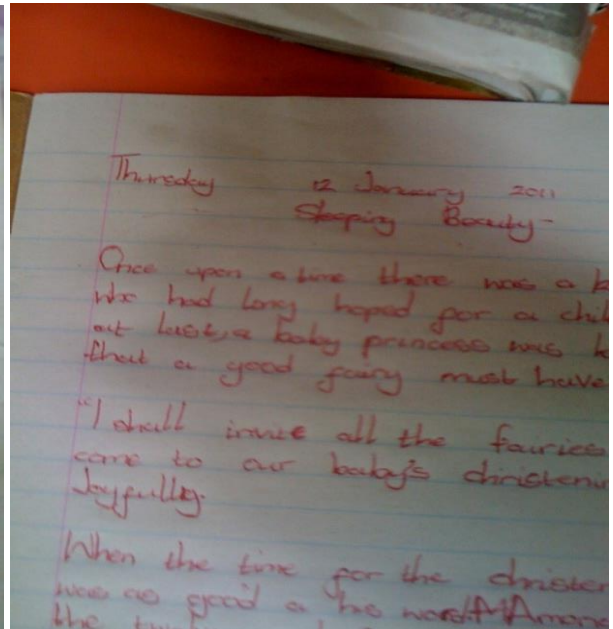 Thursday 12 January 2011
Sleeping Beauty-
Once upon a time there was a
who had long hoped for a chil
at last, a baby princess was
that a good fairy must have
"I shall invite all the fairies
come to our baby's christeni
Joyfully.
When the time for the christen
was as good a his word. Among
the